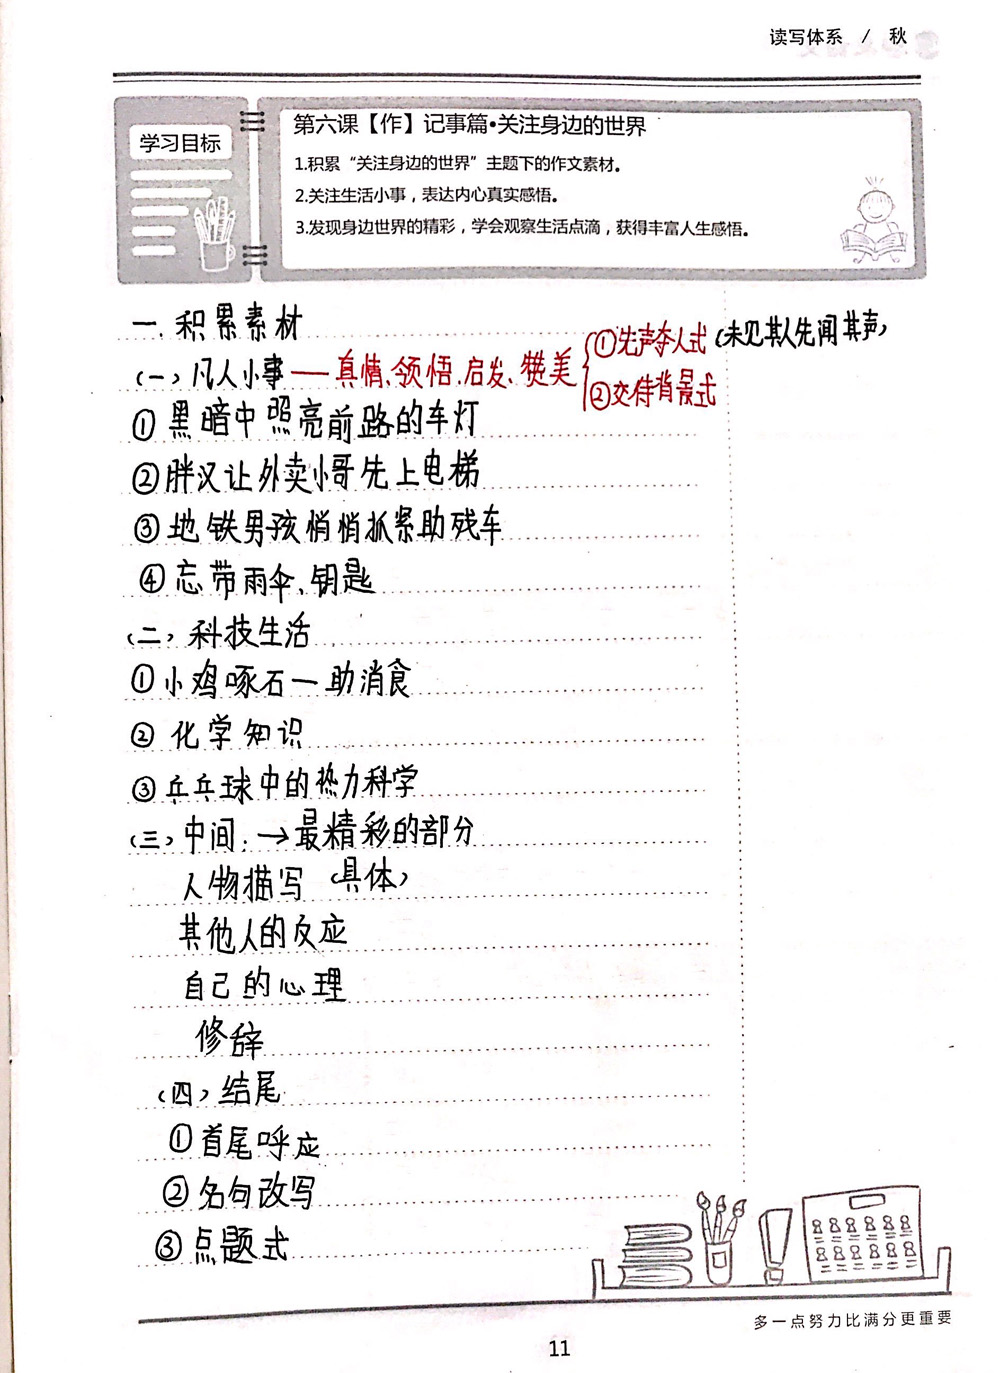 读写体系 / 秋
学习目标
第六课【作】记事篇·关注身边的世界
1.积累“关注身边的世界”主题下的作文素材。
2.关注生活小事，表达内心真实感悟。
3.发现身边世界的精彩，学会观察生活点滴，获得丰富人生感悟。
一.积累素材
(一)凡人小事——真情、领悟、启发、赞美
①先声夺人式(未见其人先闻其声)
②交待背景式
①黑暗中照亮前路的车灯
②胖汉让外卖小哥先上电梯
③地铁男孩悄悄抓紧助残车
④忘带雨伞、钥匙
(二)科技生活
①小鸡啄石—助消食
②化学知识
③乒乓球中的热力科学
(三)中间:→最精彩的部分
人物描写(具体)
其他人的反应
自己的心理
修辞
(四)结尾
①首尾呼应
②名句改写
③点题式
多一点努力比满分更重要
11